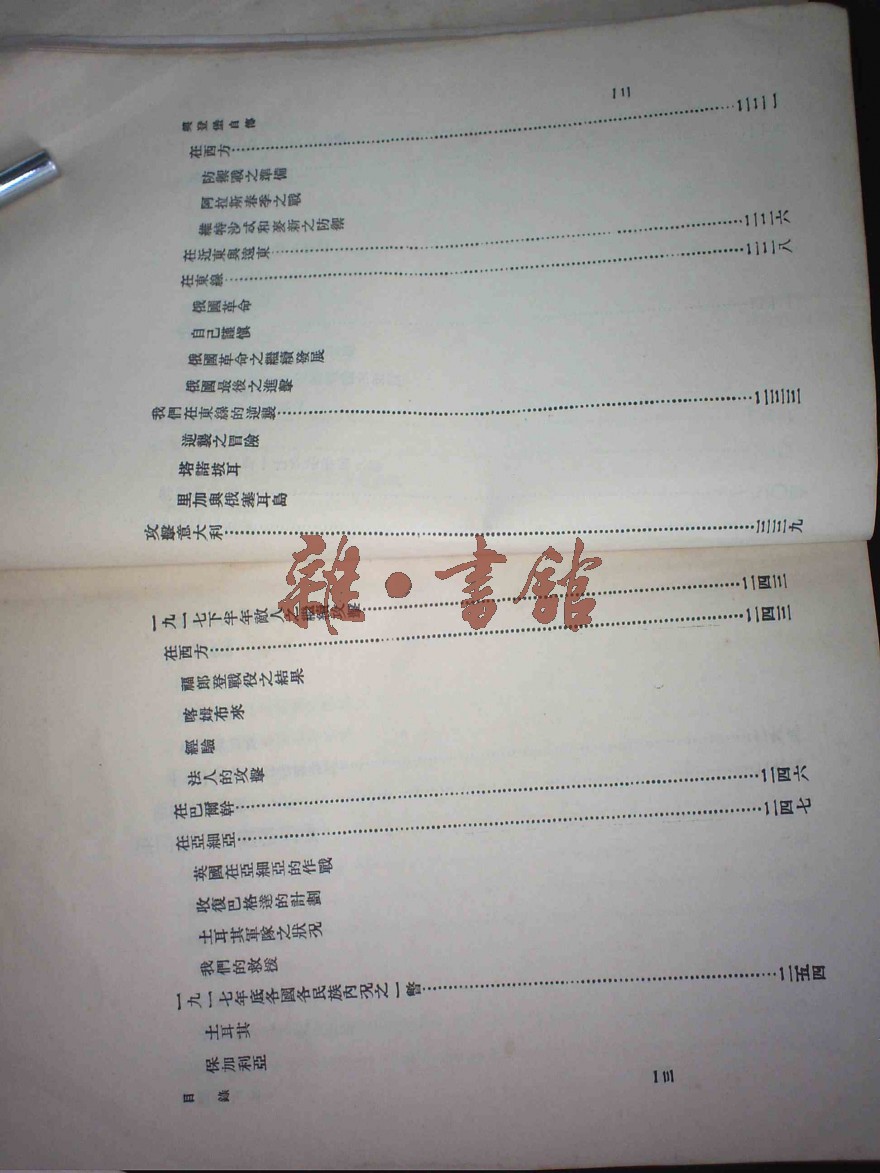 興登堡自傳
一二
在西方……二二一
防禦戰之準備
阿拉斯春季之戰
維特沙忒和姿新之防禦
在近東與遠東……二二六
在東線……二二八
俄國革命
自己謹慎
俄國革命之繼續發展
俄國最後之進擊
我們在東線的逆襲……二三三
逆襲之冒險
塔諾拔耳
里加與俄塞耳島
攻擊意大利……二三九
一九一七下半年敵人之繼續攻擊……二四三
在西方……二四三
福郎登戰役之結果
喀姆布來
經驗
法人的攻擊
在巴爾幹……二四六
在亞細亞……二四七
英國在亞細亞的作戰
收復巴格達的計劃
土耳其軍隊之狀況
我們的救援
一九一七年底各國各民族內況之一瞥……二五四
土耳其
保加利亞
目錄
一三
雜·書館